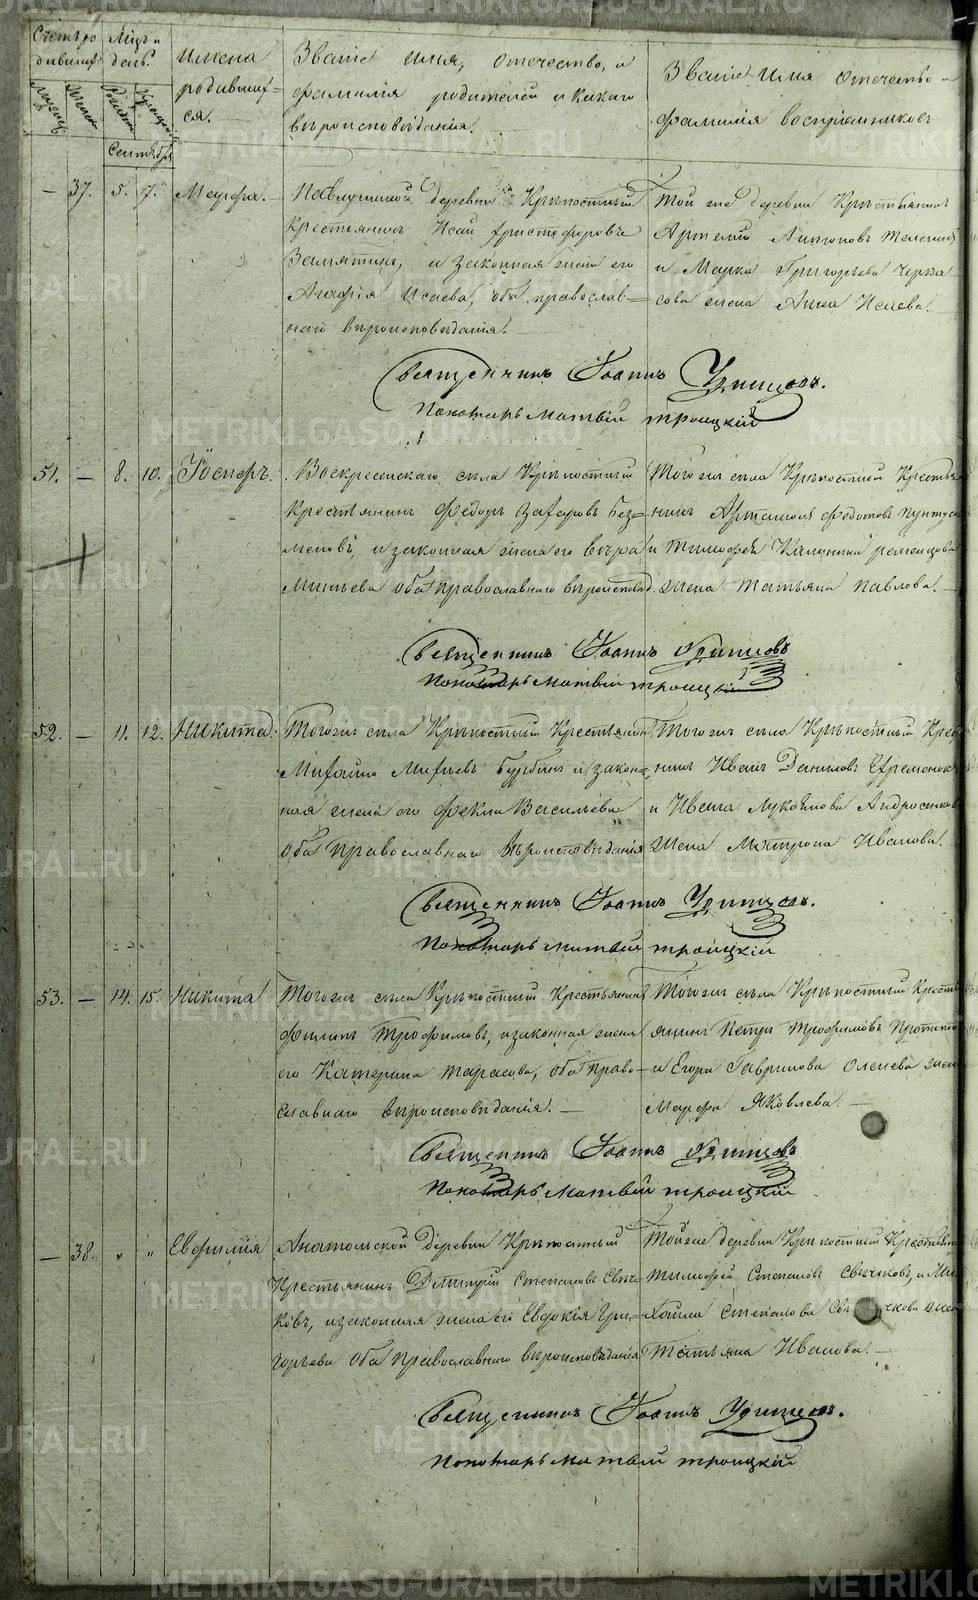 METRIKI.GASO-URAL.RU
Счетъ ро
дившихся
Мужеск
Женск
Мѣц. и
день.
Рожден
Крещенія
Сентября
Имена
родивших-
ся.
Званіе имя, отечество, и
фамилія родителей и какого
вѣроисповѣданія.
Званіе имя отечество и
фамилія воспріемниковъ
— 37. 5. 7. Марфа.
деревни Крѣпостный
Крестьянинъ Исай Христофоровъ
Замятинъ, и законная жена его
Агафія Исаева, оба православ-
наго вѣроисповѣданія. —
Той же деревни Крестьянинъ
Антоновъ
и Марка Григорьева Черка
сова жена Анна Исаева.
Священникъ Іоаннъ
Пономарь Матвѣй Троицкій
51. — 8. 10.
Воскресенскаго села Крѣпостный
Крестьянинъ Федоръ Захаровъ Без-
меновъ, и законная жена его Вѣра
Минѣева оба православнаго вѣроисповед
Тогожъ села Крѣпостной Крестья
нинъ Федотовъ
и Тимофея Калинина
жена Татьяна Павлова. —
Священникъ Іоаннъ
Пономарь Матвѣй Троицкій
52. — 11. 12. Никита.
Тогожъ села Крѣпостный Крестьянинъ
Михайло и закон-
ная жена его Фекла Васильева
оба Православнаго Вѣроисповѣданія
Тогожъ села Крѣпостный Крес
нинъ Иванъ Даниловъ
и Ивана Лукоянова Андросенкова
жена Матрона Иванова.
Священникъ Іоаннъ
Пономарь Матвѣй Троицкій
53. — 14. 15. Никита
Тогожъ села Крѣпостный Крестьянинъ
Филипъ Трофимовъ, и законная жена
его Катерина Тарасова, оба право-
славнаго вѣроисповѣданія. —
Тогожъ села Крѣпостный Кресть
янинъ Петръ Трофимовъ
и Егора Гаврилова Оленева жена
Марфа Яковлева. —
Священникъ Іоаннъ
Пономарь Матвѣй Троицкій
— 38. „ „ Евфимія
Анатольской деревни Крѣпостный
Крестьянинъ Дмитрій Степановъ Свеч-
ковъ, и законная жена его Евдокія Гри-
горьева оба Православнаго вѣроисповѣданія
Той же деревни Крѣпостный Крестьянин
Тимофей Степановъ Свечковъ, и Ми-
хайла Степанова жена
Татьяна Иванова. —
Священникъ Іоаннъ
Пономарь Матвѣй Троицкій